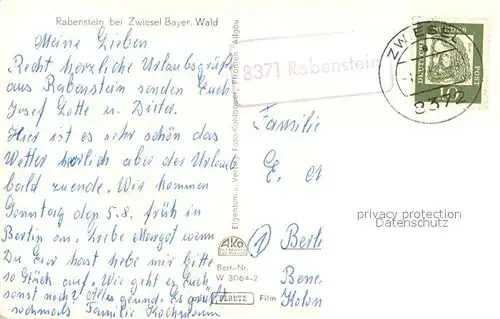 Rabenstein bei Zwiesel Bayer. Wald
Meine Lieben
Recht herzliche Urlaubsgrüße
aus Rabenstein senden Euch
Josef Lotte u. Dieter.
Hier ist es sehr schön das
Wetter herlich aber der Urlaub
bald zuende. Wir kommen
Sonntag den 5.8. früh in
Berlin an. Liebe Margot wenn
Du Eier hast hebe mir bitte
50 Stück auf. Wie geht es Euch
sonst noch? Alles gesund. Es grüßt
nochmals Familie
8371 Rabenstein
ZWIESEL
8372
DEUTSCHE BUNDESPOST
10
Familie
E.
1 Berli
Bene
Kolon
Eigentum u. Verlag Foto-Kohlbauer, Pfronten, Allgäu
AKO
Best.-Nr.
W 3064-2
PERUTZ Film
privacy protection
DATENSCHUTZ